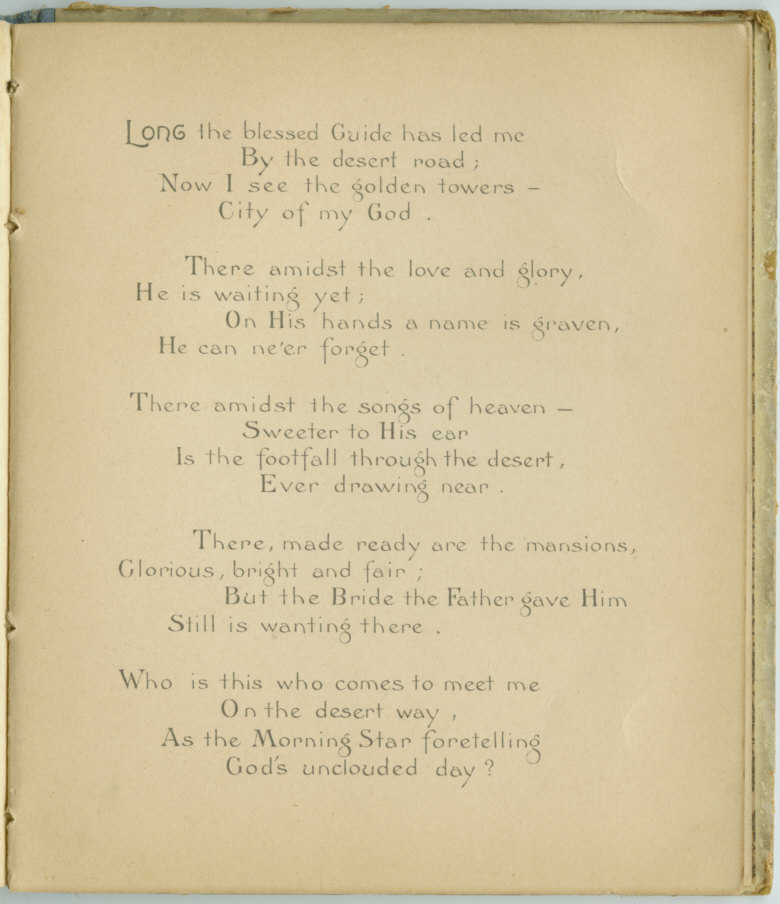 Long the blessed Guide has led me
By the desert road ;
Now I see the golden towers –
City of my God .
There amidst the love and glory,
He is waiting yet ;
On His hands a name is graven,
He can ne'er forget .
There amidst the songs of heaven –
Sweeter to His ear
Is the footfall through the desert,
Ever drawing near .
There, made ready are the mansions,
Glorious, bright and fair ;
But the Bride the Father gave Him
Still is wanting there .
Who is this who comes to meet me
On the desert way ,
As the Morning Star foretelling
God's unclouded day ?